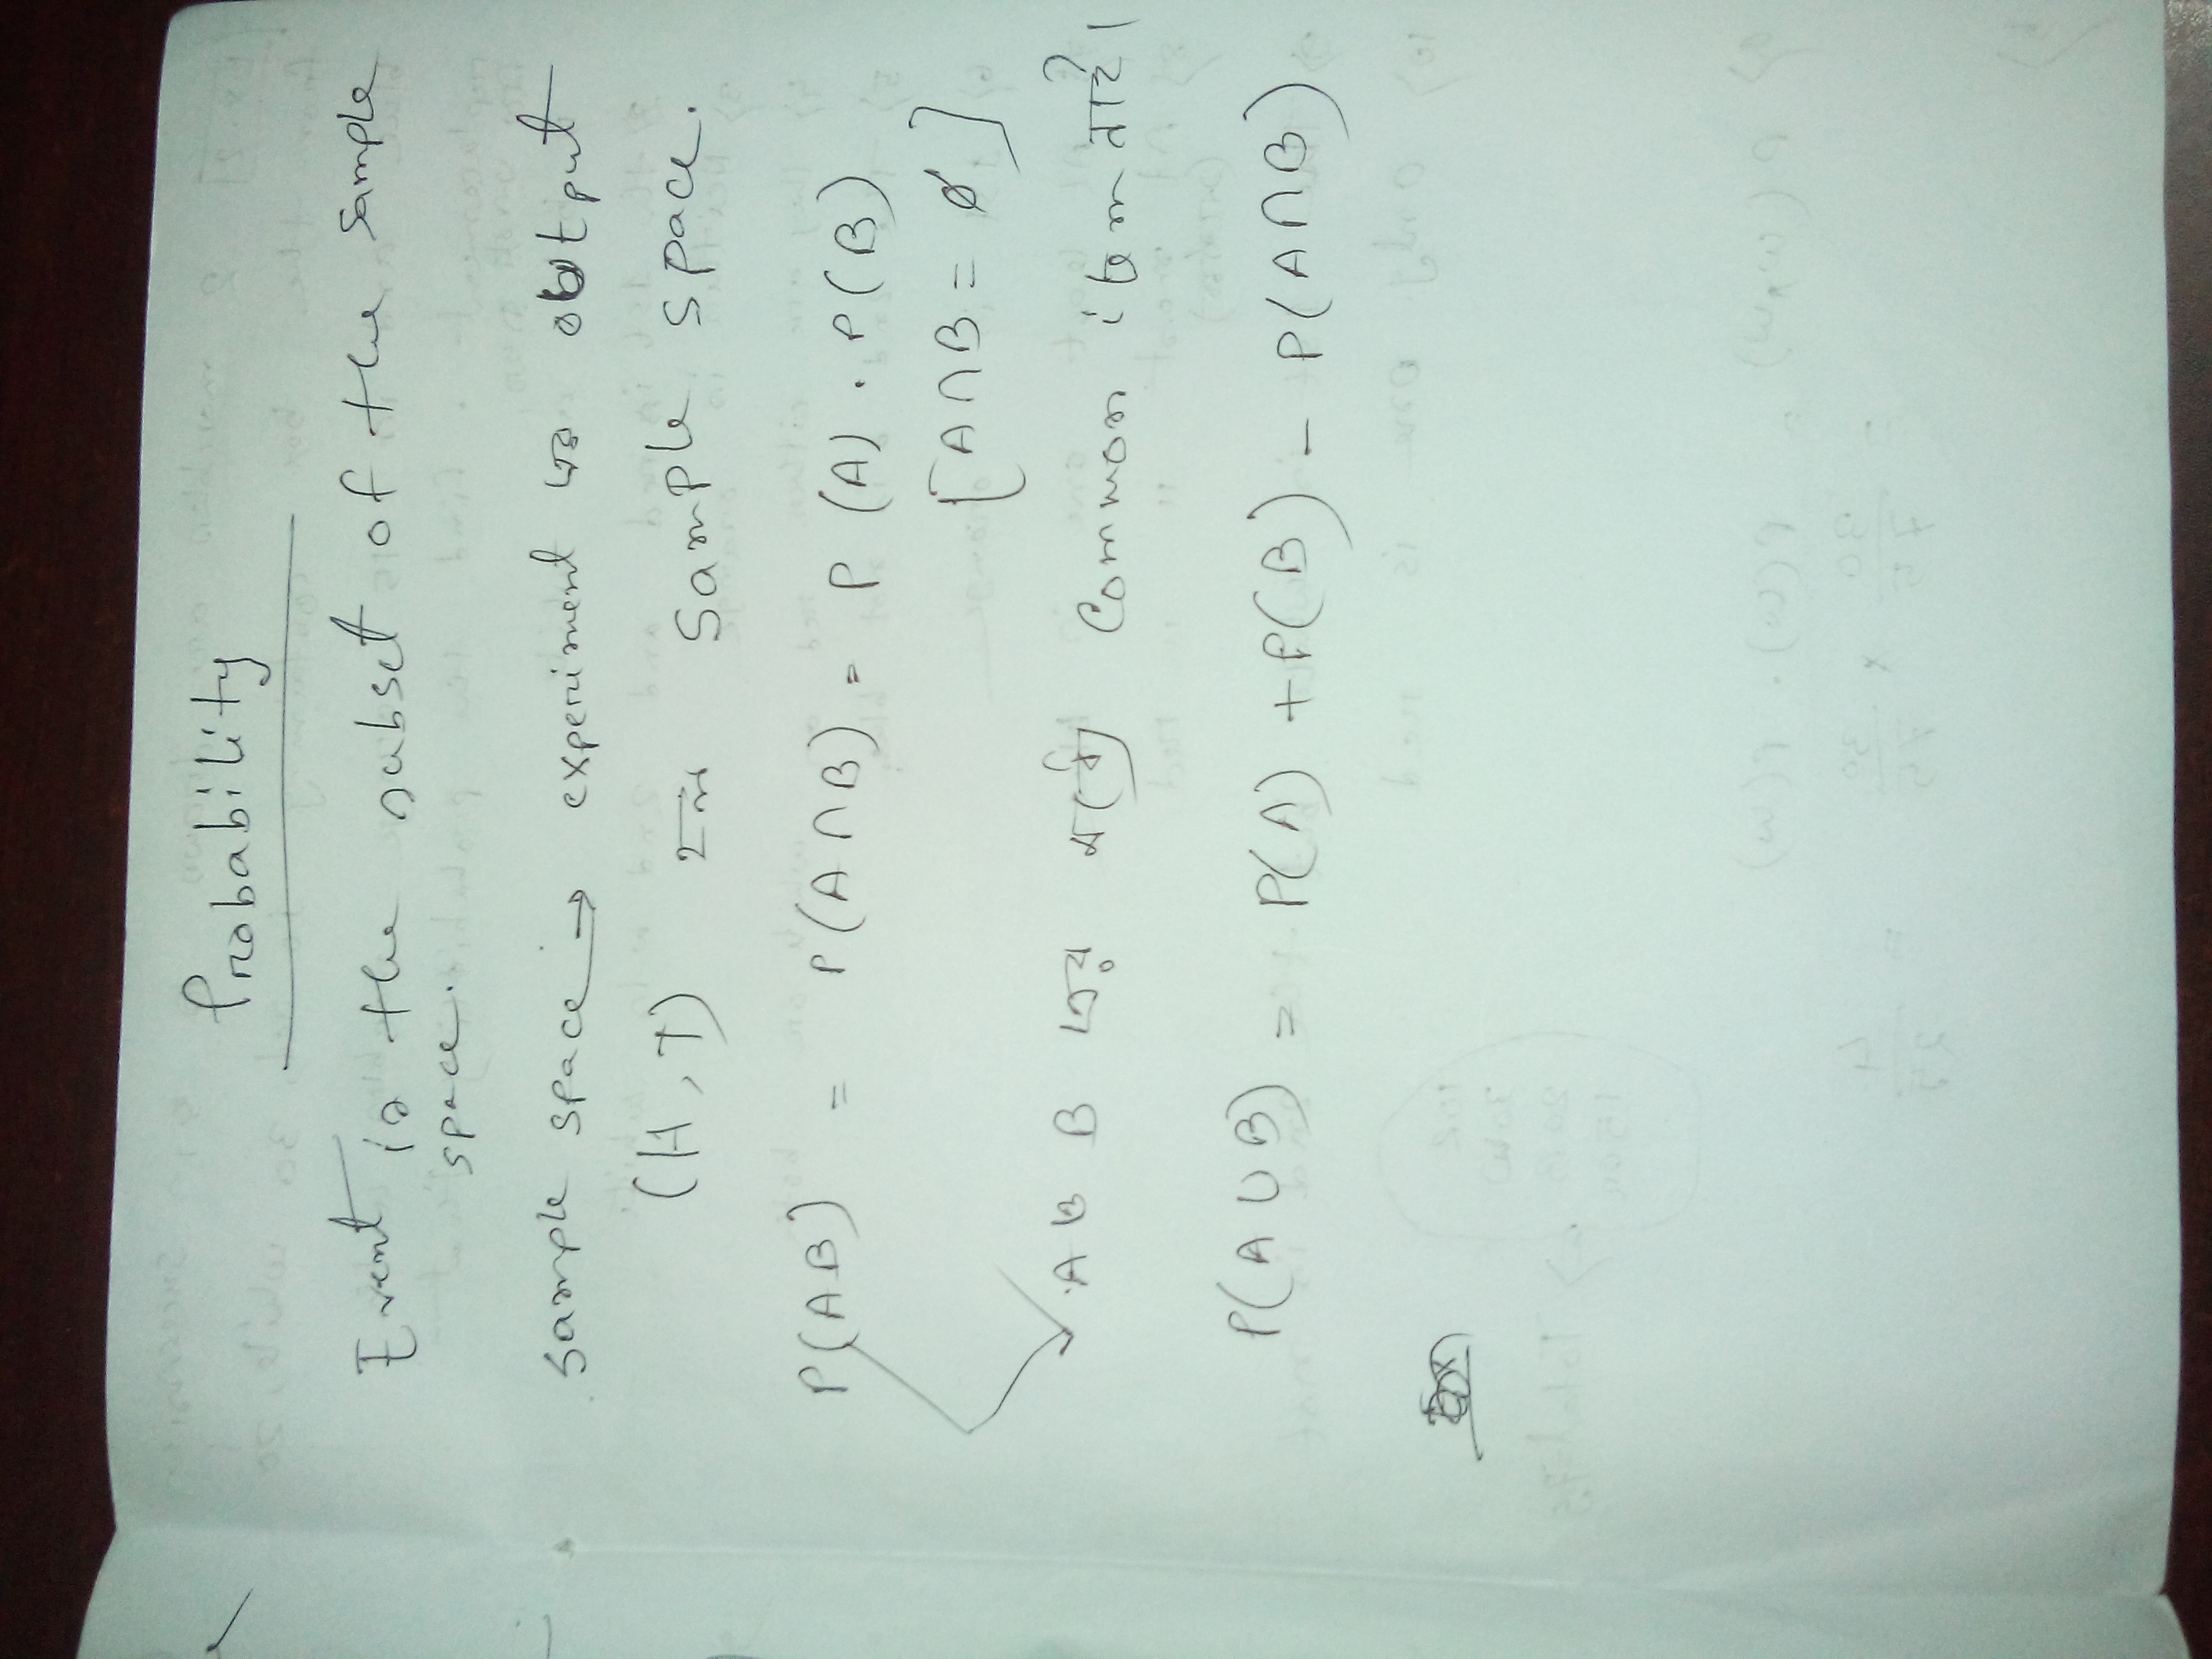 Probability
Event is the subset of the sample
space.
Sample space → experiment এর output
(H, T) হল Sample space.
P(AB) = P(A∩B) = P(A) . P(B)
[A∩B = ø]
A ও B এর মধ্যে Common item নাই।
P(A∪B) = P(A) + P(B) - P(A∩B)